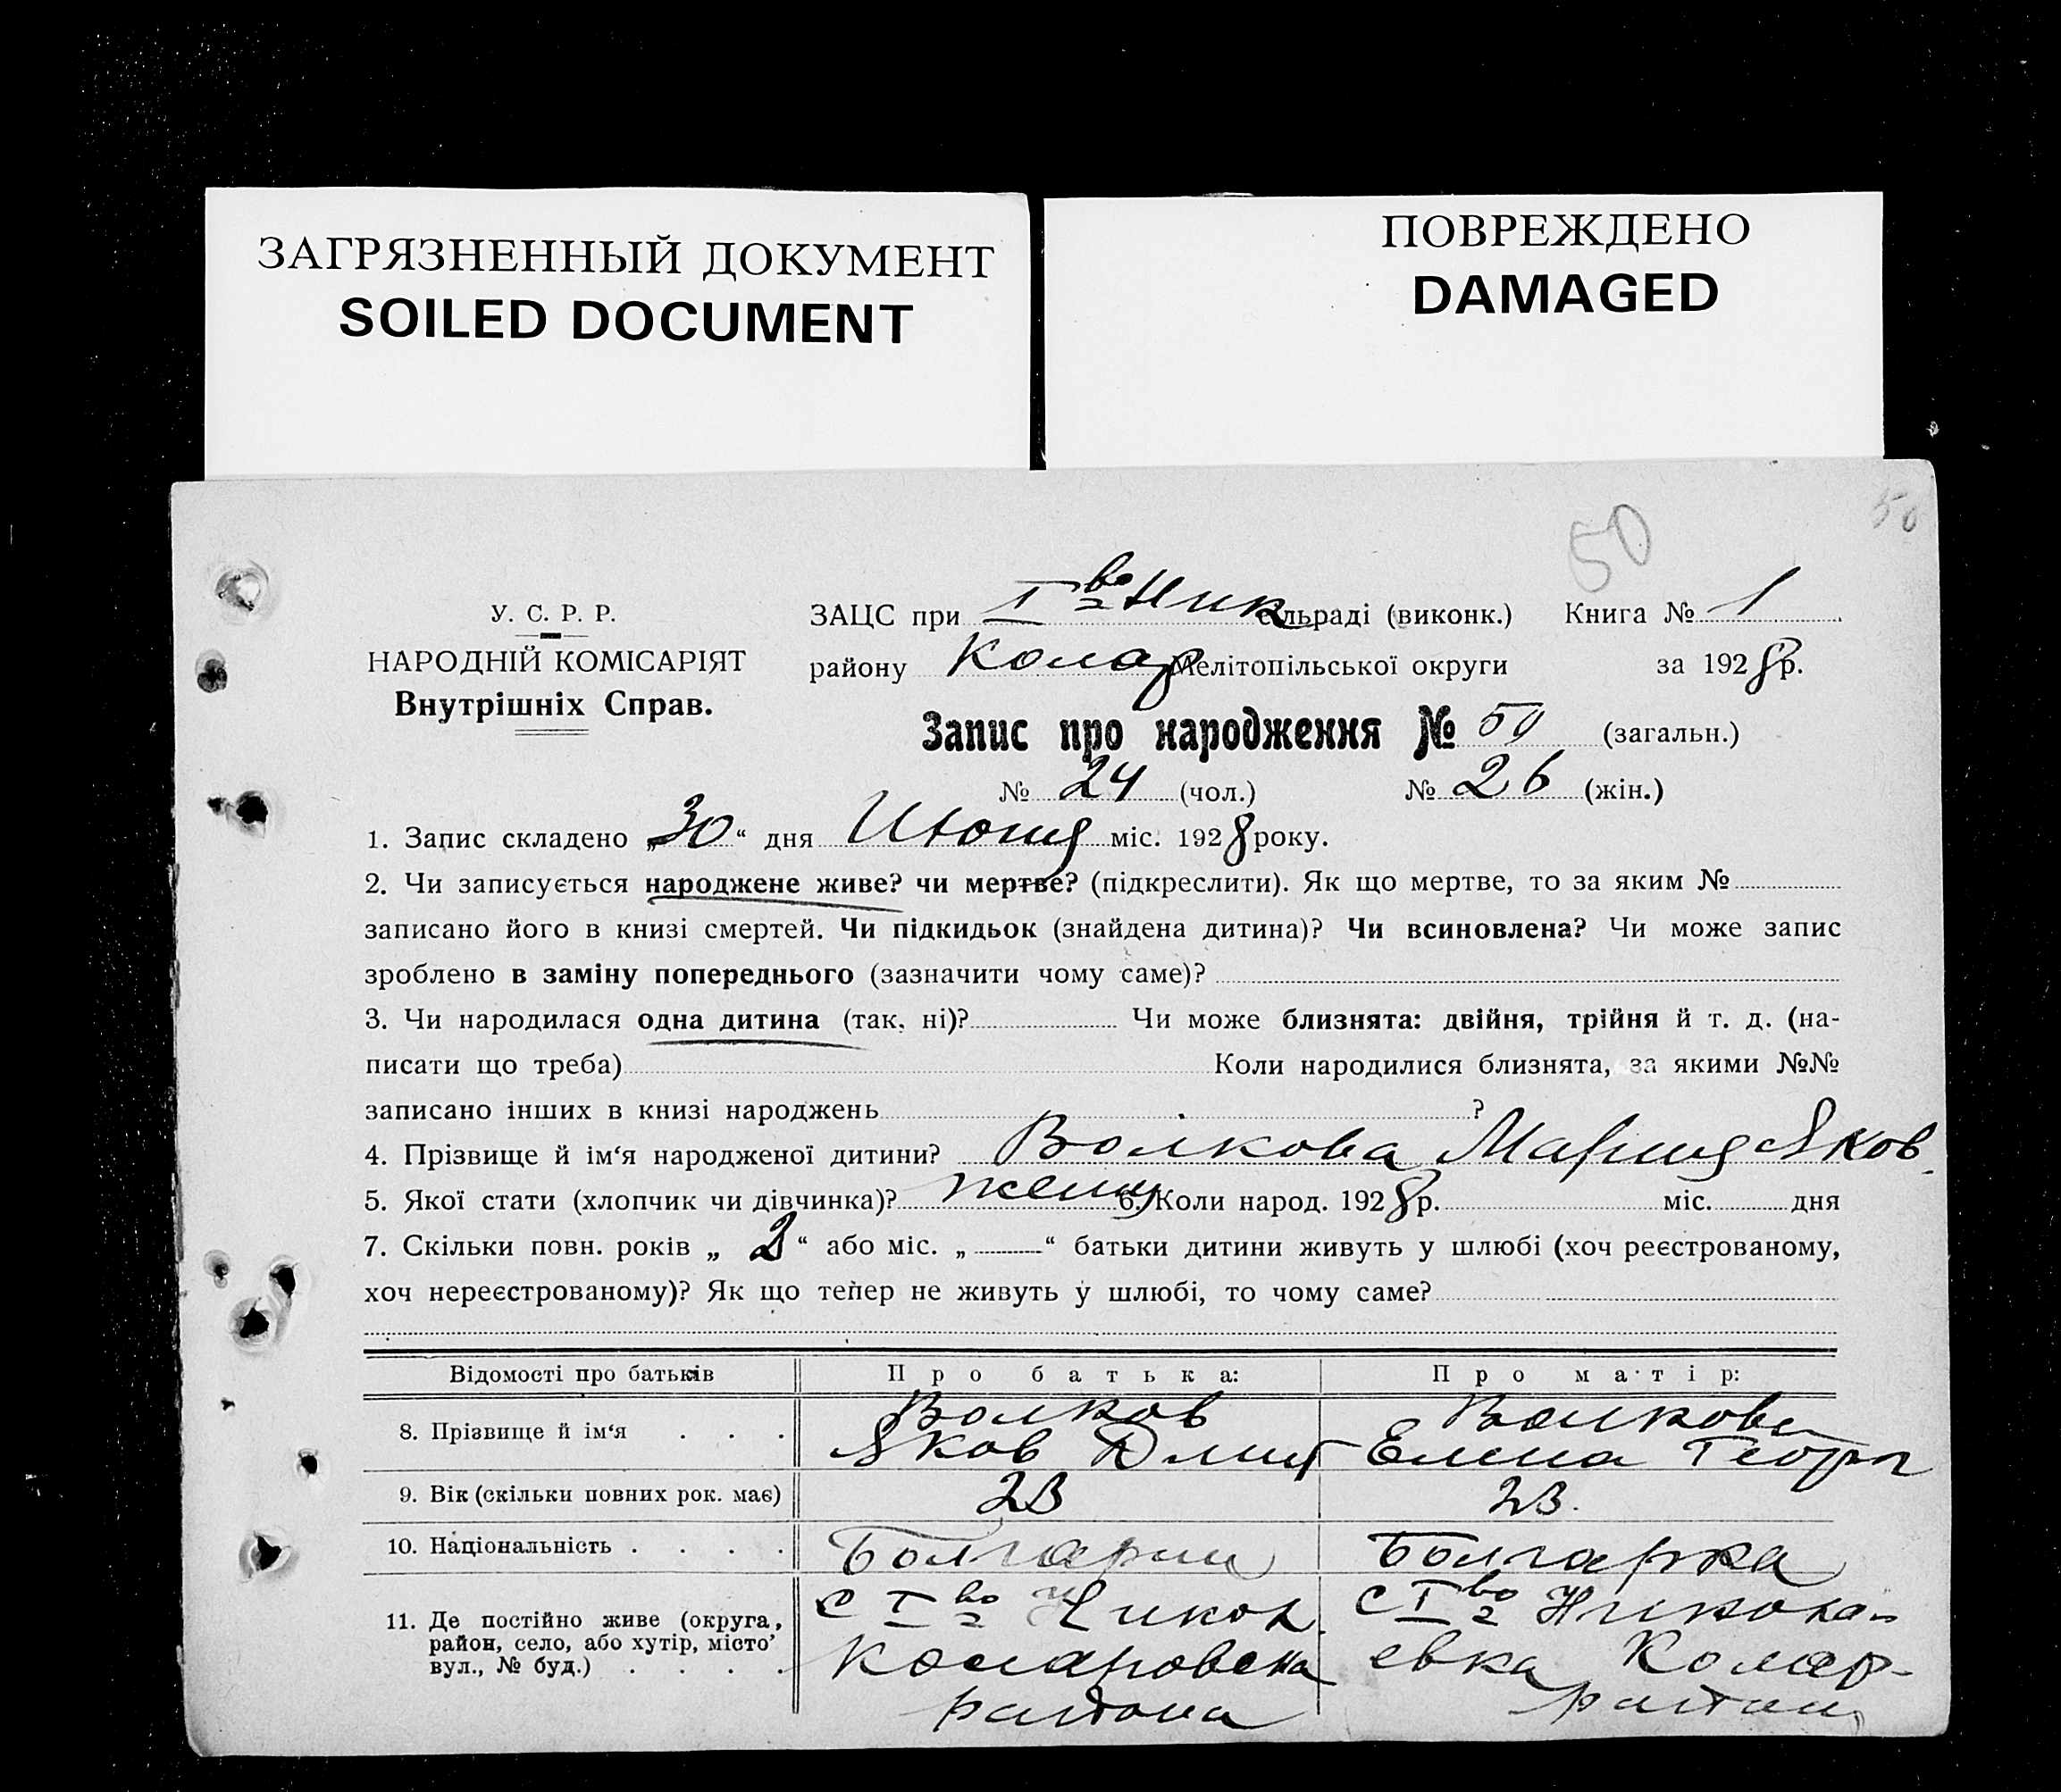 ЗАГРЯЗНЕННЫЙ ДОКУМЕНТ
SOILED DOCUMENT
ПОВРЕЖДЕНО
DAMAGED
50
50
У. С. Р. Р.
НАРОДНІЙ КОМІСАРІЯТ
Внутрішніх Справ.
ЗАЦС при I во Ник сільраді (виконк.) Книга № 1
району Комар Мелітопільської округи за 1928 р.
Запис про народження № 50 (загальн.)
№ 24 (чол.) № 26 (жін.)
1. Запис складено „30“ дня Июня міс. 1928 року.
2. Чи записується народжене живе? чи мертве? (підкреслити). Як що мертве, то за яким №
записано його в книзі смертей. Чи підкидьок (знайдена дитина)? Чи всиновлена? Чи може запис
зроблено в заміну попереднього (зазначити чому саме)?
3. Чи народилася одна дитина (так, ні)? Чи може близнята: двійня, трійня й т. д. (на-
писати що треба) Коли народилися близнята, за якими №№
записано інших в книзі народжень ?
4. Прізвище й ім‘я народженої дитини? Волкова Мария Яков.
5. Якої стати (хлопчик чи дівчинка)? 6. Коли народ. 1928 р. міс. дня
7. Скільки повн. років „ “ або міс. „ “ батьки дитини живуть у шлюбі (хоч реєстрованому,
хоч нереєстрованому)? Як що тепер не живуть у шлюбі, то чому саме?
Відомості про батьків Про батька: Про матір:
8. Прізвище й ім‘я . . . Волков Волкова
Яков Дмит Елена Георг
9. Вік (скільки повних рок. має) 23 23.
10. Національність . . . . Болгарин Болгарка
11. Де постійно живе (округа, район, село, або хутір, місто вул., № буд.) . . . . с I во Никол. с I во Никола-
Комаровска евка Комар-
района района